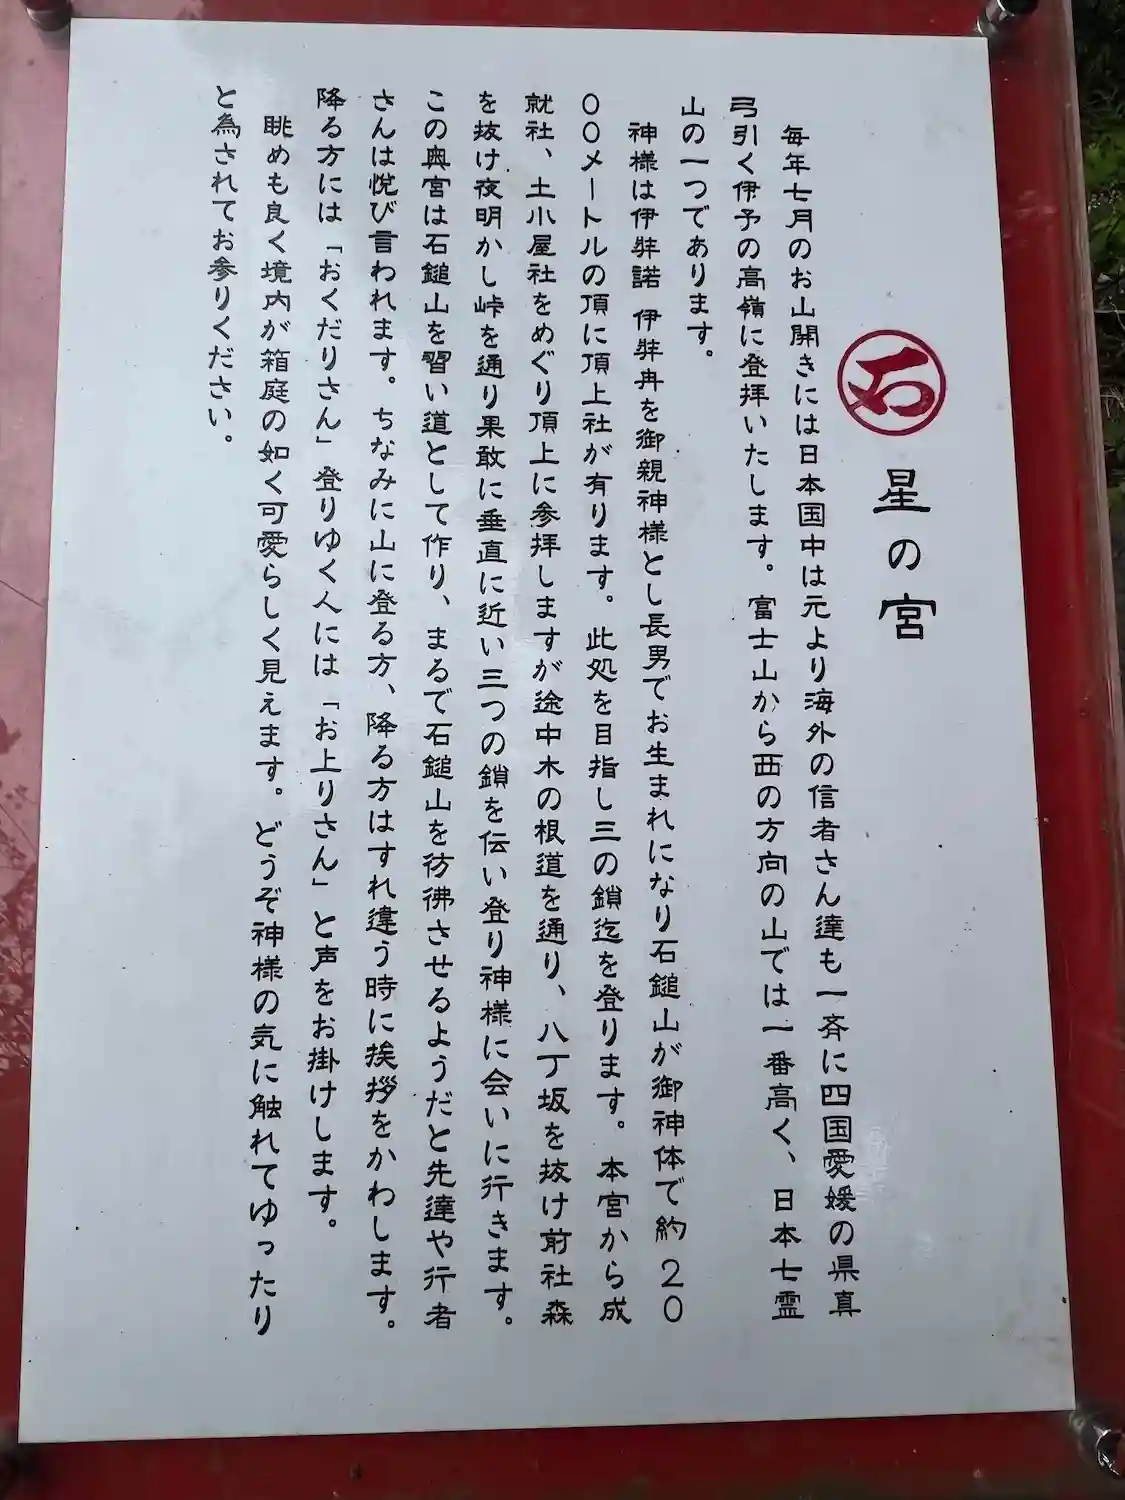 石 星の宮
毎年七月のお山開きには日本国中は元より海外の信者さん達も一斉に四国愛媛の県真
弓引く伊予の高嶺に登拝いたします。富士山から西の方向の山では一番高く、日本七霊
山の一つであります。
神様は伊弉諾 伊弉冉を御親神様とし長男でお生まれになり石鎚山が御神体で約20
00メートルの頂に頂上社が有ります。此処を目指し三の鎖迄を登ります。本宮から成
就社、土小屋社をめぐり頂上に参拝しますが途中木の根道を通り、八丁坂を抜け前社森
を抜け夜明かし峠を通り果敢に垂直に近い三つの鎖を伝い登り神様に会いに行きます。
この奥宮は石鎚山を習い道として作り、まるで石鎚山を彷彿させるようだと先達や行者
さんは悦び言われます。ちなみに山に登る方、降る方はすれ違う時に挨拶をかわします。
降る方には「おくだりさん」登りゆく人には「お上りさん」と声をお掛けします。
眺めも良く境内が箱庭の如く可愛らしく見えます。どうぞ神様の気に触れてゆったり
と為されてお参りください。